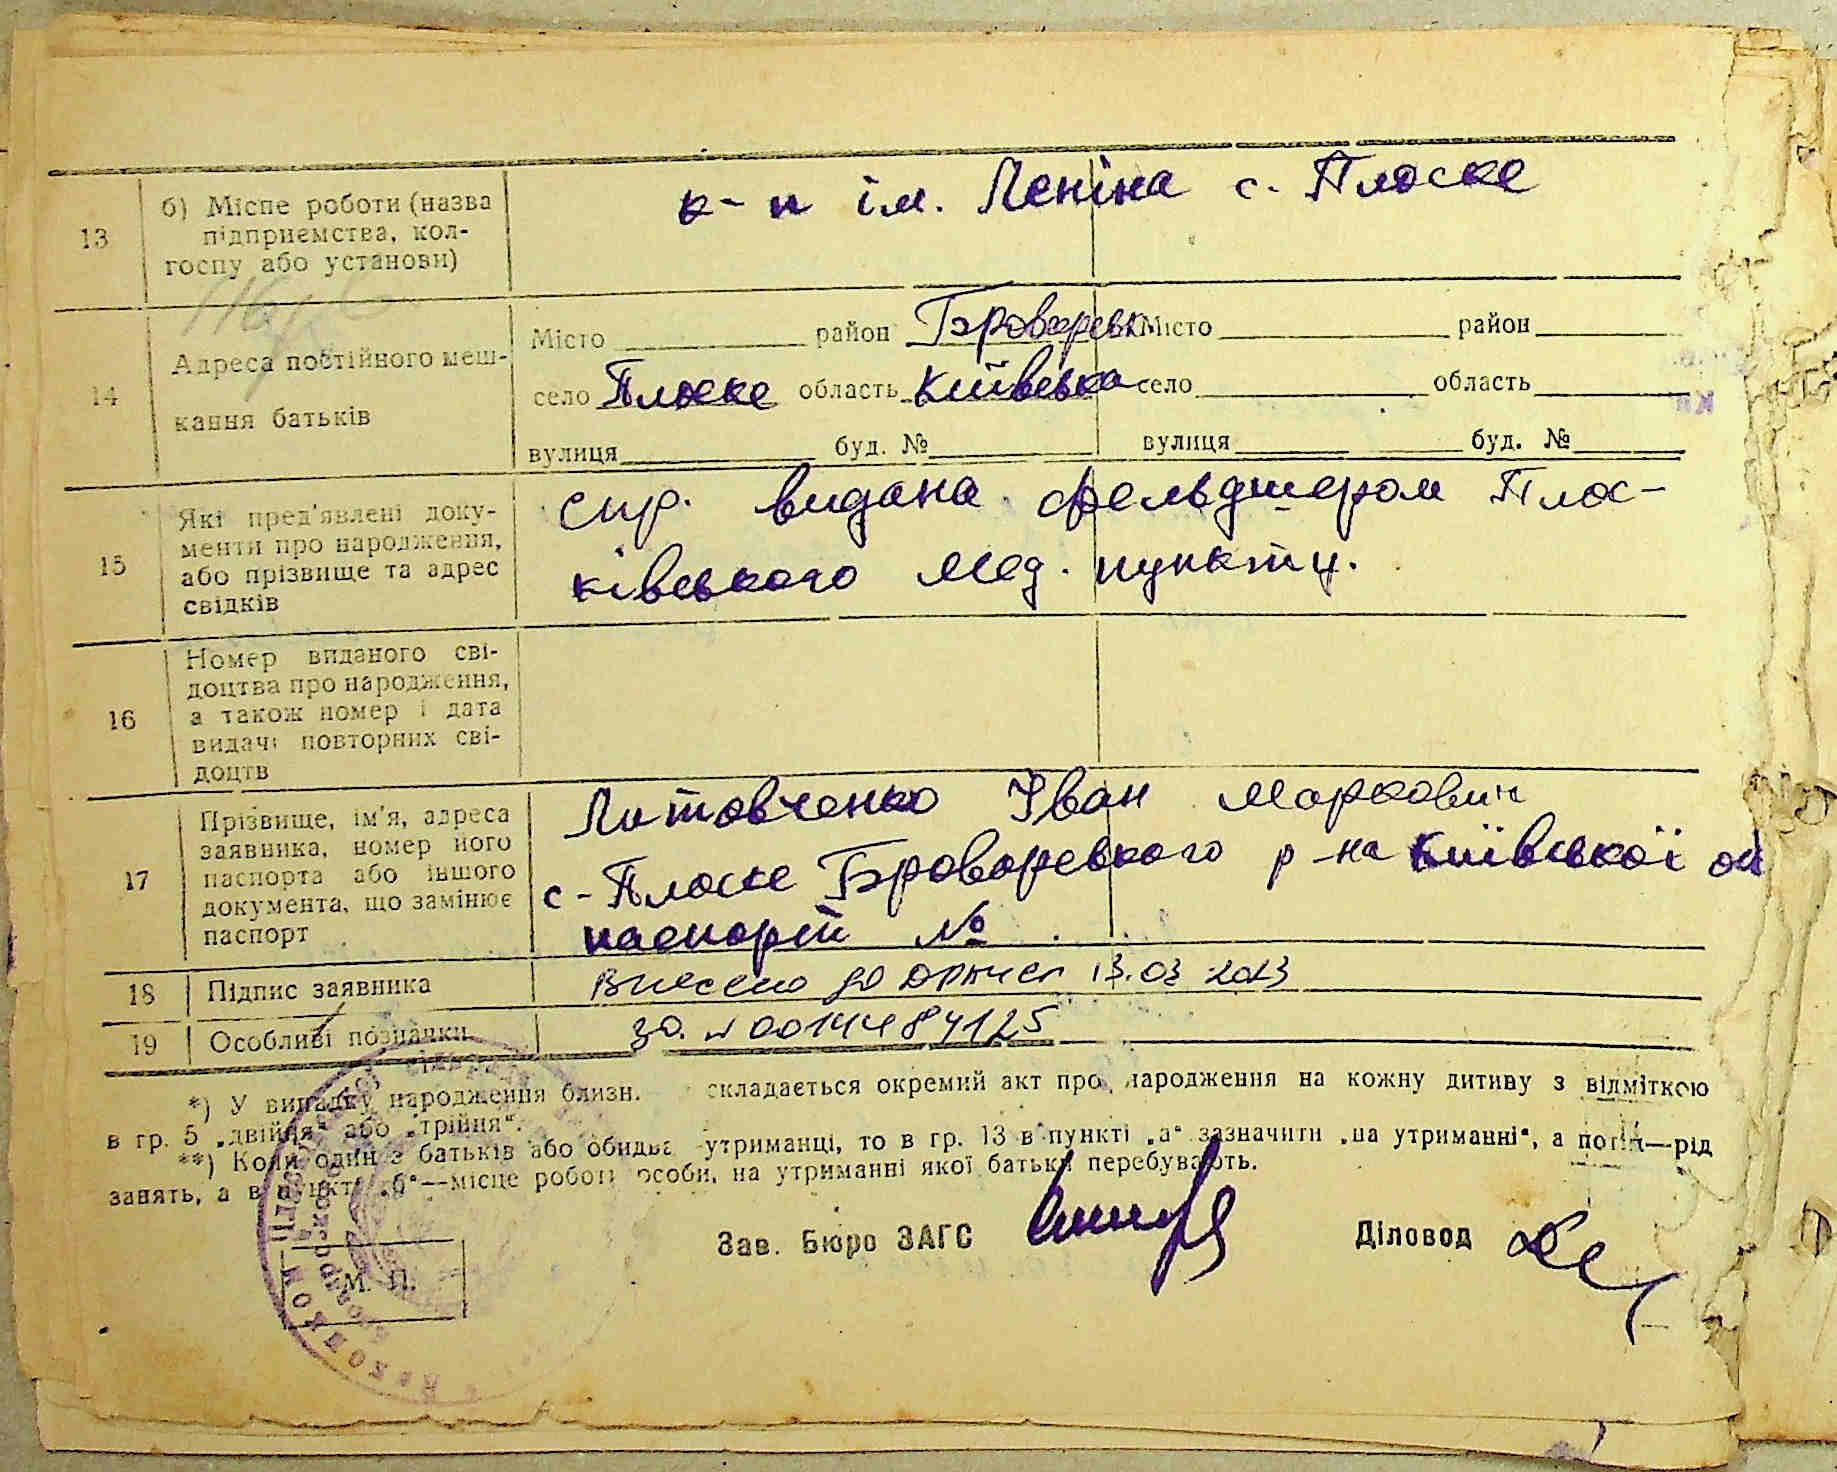 13
б) Місце роботи (назва
підприємства, кол-
госпу або установи)
к-п ім. Леніна с. Плоске
14
Адреса постійного меш-
кання батьків
Місто район Броварськ Місто район
село Плоске область Київська село область
вулиця буд. № вулиця буд. №
15
Які пред'явлені доку-
менти про народження,
або прізвище та адрес
свідків
спр. видана фельдшером Плос-
ківського мед. пункту.
16
Номер виданого сві-
доцтва про народження,
а також номер і дата
видачі повторних сві-
доцтв
17
Прізвище, ім'я, адреса
заявника, номер його
паспорта або іншого
документа, що замінює
паспорт
Литовченко Іван Маркович
с-Плоске Броварського р-на Київської об
паспорт №
18 Підпис заявника
Внесено до 13.03 2023
19 Особливі позначки
за. № 00144484125
*) У випадку народження близн. складається окремий акт про народження на кожну дитину з відміткою
в гр. 5 „двійня“ або „трійня“.
**) Коли один з батьків або обидва утриманці, то в гр. 13 в пункті „а“ зазначити „на утриманні“, а потім—рід
занять, а в пункті „б“—місце роботи особи, на утриманні якої батьки перебувають.
Зав. Бюро ЗАГС Діловод
М. П.